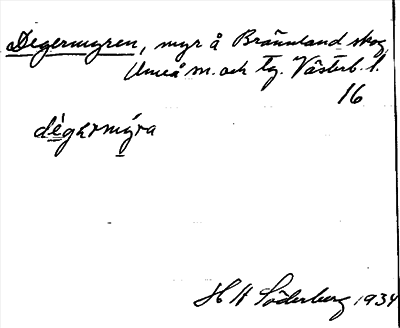 Degermyren, myr å Brännland skog,
Umeå m. och tg. Västerb. l.
16
dègərmýra
H H Söderberg 1934